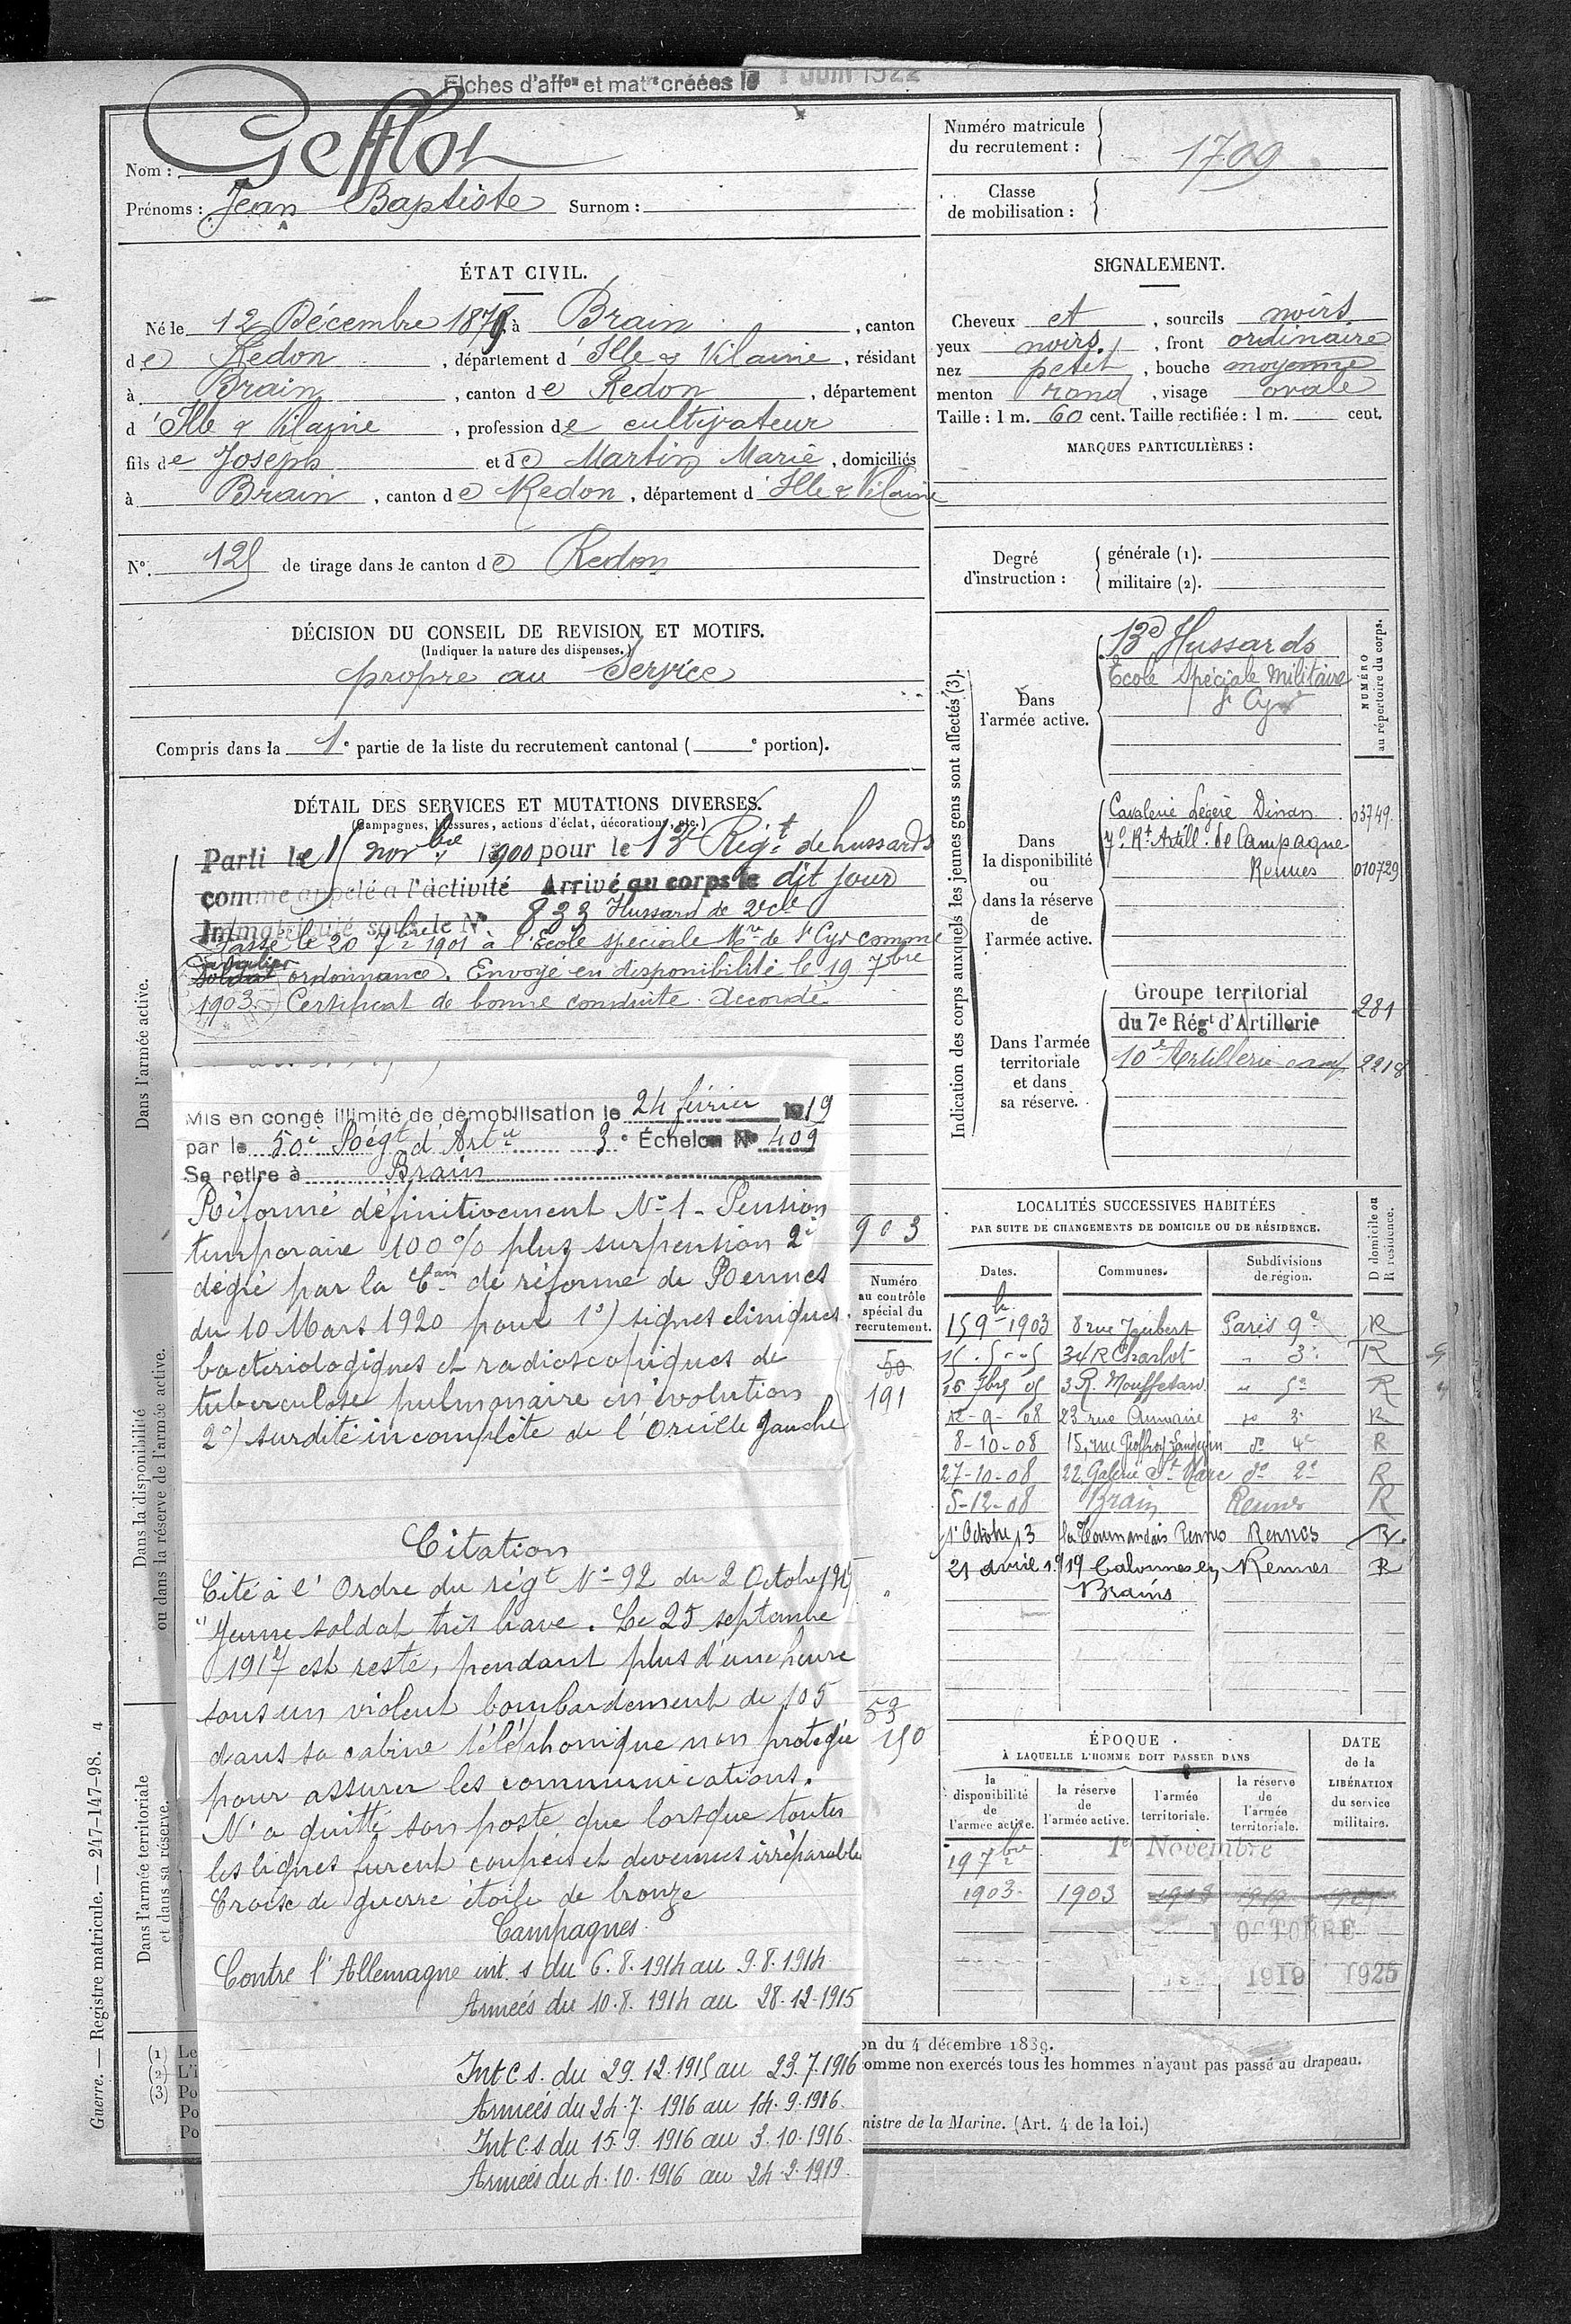 Fiches d'affon et matre créées le 1 Juin 1922
Nom : Gefflot
Prénoms : Jean Baptiste Surnom :
Numéro matricule du recrutement : 1709
Classe de mobilisation :
ÉTAT CIVIL.
Né le 12 Décembre 1879, à Brain, canton
de Redon, département d'Ille & Vilaine, résidant
à Brain, canton de Redon, département
d'Ille & Vilaine, profession de cultivateur
fils de Joseph et de Martin Marie, domiciliés
à Brain, canton de Redon, département d'Ille & Vilaine
N° 125 de tirage dans le canton de Redon
SIGNALEMENT.
Cheveux et, sourcils noirs
yeux noirs, front ordinaire
nez petit, bouche moyenne
menton rond, visage ovale
Taille : 1 m. 60 cent. Taille rectifiée : 1 m. cent.
MARQUES PARTICULIÈRES :
Degré d'instruction : générale (1).
militaire (2).
DÉCISION DU CONSEIL DE REVISION ET MOTIFS.
(Indiquer la nature des dispenses.)
propre au Service
Compris dans la 1e partie de la liste du recrutement cantonal ( e portion).
DÉTAIL DES SERVICES ET MUTATIONS DIVERSES.
(Campagnes, blessures, actions d'éclat, décorations, etc.)
Parti le 15 novbre 1900 pour le 13e Régt de hussards
comme appelé à l'activité Arrivé au corps le dit jour
Immatriculé sous le N° 833 Hussard de 2e cle
Passé le 20 7bre 1901 à l'Ecole spéciale Mre de St Cyr comme
Cavalier
Soldat ordonnance. Envoyé en disponibilité le 19 7bre
1903. Certificat de bonne conduite Accordé
Mis en congé illimité de démobilisation le 24 février 1919
par le 50e Régt d'Artie 3e Échelon N° 409
Se retire à Brain
Réformé définitivement N° 1 - Pension
temporaire 100 % plus surpension 2e
degré par la Con de réforme de Rennes
du 10 Mars 1920 pour 1°) signes cliniques
bactériologiques et radioscopiques de
tuberculose pulmonaire en évolution
2°) surdité incomplète de l'Oreille gauche
Citation
Cité à l'Ordre du régt N° 92 du 2 Octobre
"Jeune soldat très brave. Le 25 septembre
1917 est resté, pendant plus d'une heure
sous un violent bombardement de 105
dans sa cabine téléphonique non protégée
pour assurer les communications.
N'a quitté son poste que lorsque toutes
les lignes furent coupées et devenues irréparables
Croix de guerre étoile de bronze
Campagnes.
Contre l'Allemagne int. s du 6.8.1914 au 9.8.1914
Armées du 10.8.1914 au 28.12.1915
Int C s. du 29.12.1915 au 23.7.1916
Armées du 24.7.1916 au 14.9.1916.
Int C.s du 15.9.1916 au 3.10.1916.
Armées du 4.10.1916 au 24.2.1919.
903
Numéro au contrôle spécial du recrutement.
50
191
53
150
Indication des corps auxquels les jeunes gens sont affectés (3).
NUMÉRO au répertoire du corps.
Dans l'armée active.
13e Hussards
École Spéciale Militaire
St Cyr
Dans la disponibilité ou dans la réserve de l'armée active.
Cavalerie Légère Dinan 03749.
7e Rt Artill. de Campagne
Rennes 010729
Dans l'armée territoriale et dans sa réserve.
Groupe territorial
du 7e Régt d'Artillerie 281
10e Artillerie camp 2218
LOCALITÉS SUCCESSIVES HABITÉES
PAR SUITE DE CHANGEMENTS DE DOMICILE OU DE RÉSIDENCE.
D domicile ou R résidence.
Dates. Communes. Subdivisions de région.
15 9bre 1903 8 rue Joubert Paris 9e R
15.5.05 34 R Charlot " 3e R
16 7bre 05 3 R. Mouffetard " 5e R
12-9-08 23 rue Aumaire do 3e R
8-10-08 15, rue Geoffroy Langevin do 4e R
27-10-08 22, Galerie St Marc do 2e R
5-12-08 Brain Rennes R
1er Octobre 13 Rennes Rennes R.
21 avril 1919 Calonnes en Rennes R
Brains
ÉPOQUE
À LAQUELLE L'HOMME DOIT PASSER DANS
la disponibilité de l'armée active.
la réserve de l'armée active.
l'armée territoriale.
la réserve de l'armée territoriale.
DATE de la LIBÉRATION du service militaire.
19 7bre 1er Novembre
1903. 1903
1 OCTOBRE
1919 1925
Dans l'armée active.
Dans la disponibilité ou dans la réserve de l'armée active.
Dans l'armée territoriale et dans sa réserve.
Guerre. — Registre matricule. — 247-147-98. 4
(1) Le
(2) L'i
(3) Po
Po
Po
on du 4 décembre 1889.
omme non exercés tous les hommes n'ayant pas passé au drapeau.
nistre de la Marine. (Art. 4 de la loi.)